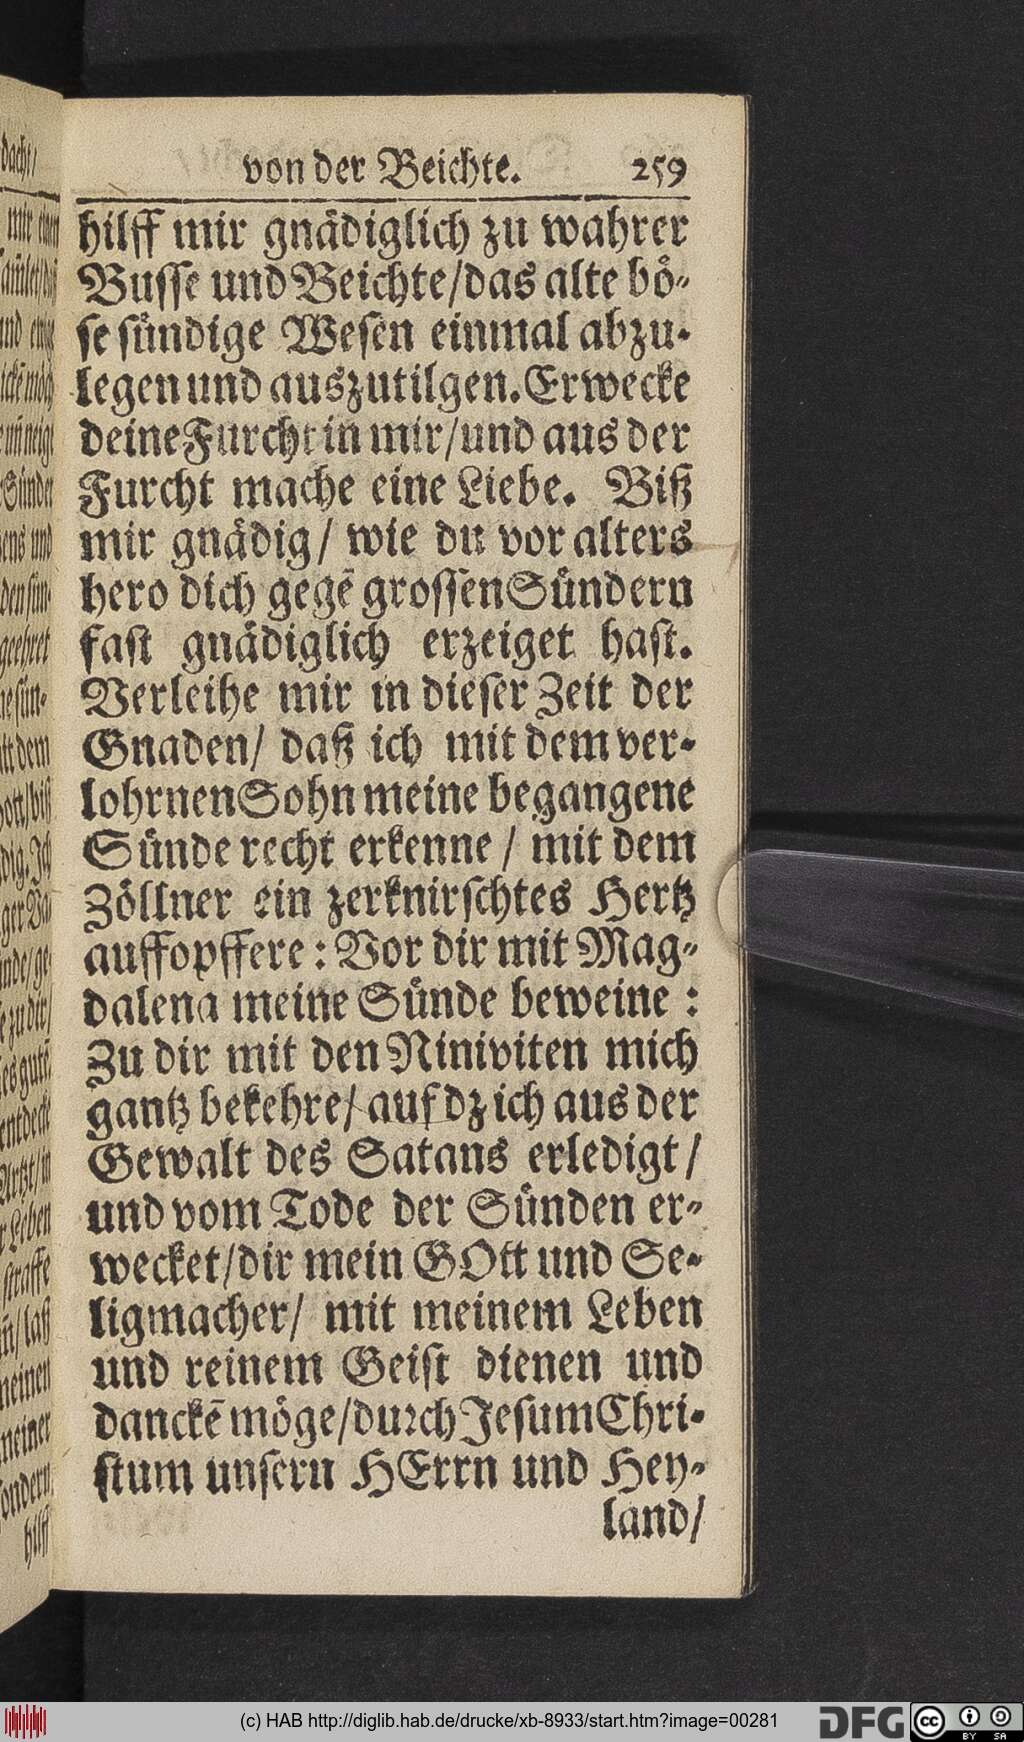 von der Beichte. 259
hilff mir gnädiglich zu wahrer
Busse und Beichte/das alte bö-
se sündige Wesen einmal abzu-
legen und auszutilgen. Erwecke
deine Furcht in mir/und aus der
Furcht mache eine Liebe. Biß
mir gnädig/ wie du vor alters
hero dich gegē grossen Sündern
fast gnädiglich erzeiget hast.
Verleihe mir in dieser Zeit der
Gnaden/ daß ich mit dem ver-
lohrnen Sohn meine begangene
Sünde recht erkenne / mit dem
Zöllner ein zerknirschtes Hertz
auffopffere: Vor dir mit Mag-
dalena meine Sünde beweine:
Zu dir mit den Niniviten mich
gantz bekehre/ auf dz ich aus der
Gewalt des Satans erledigt/
und vom Tode der Sünden er-
wecket/dir mein GOtt und Se-
ligmacher/ mit meinem Leben
und reinem Geist dienen und
danckē möge/durch Jesum Chri-
stum unsern HErrn und Hey-
land/
(c) HAB http://diglib.hab.de/drucke/xb-8933/start.htm?image=00281
DFG
cc
BY SA